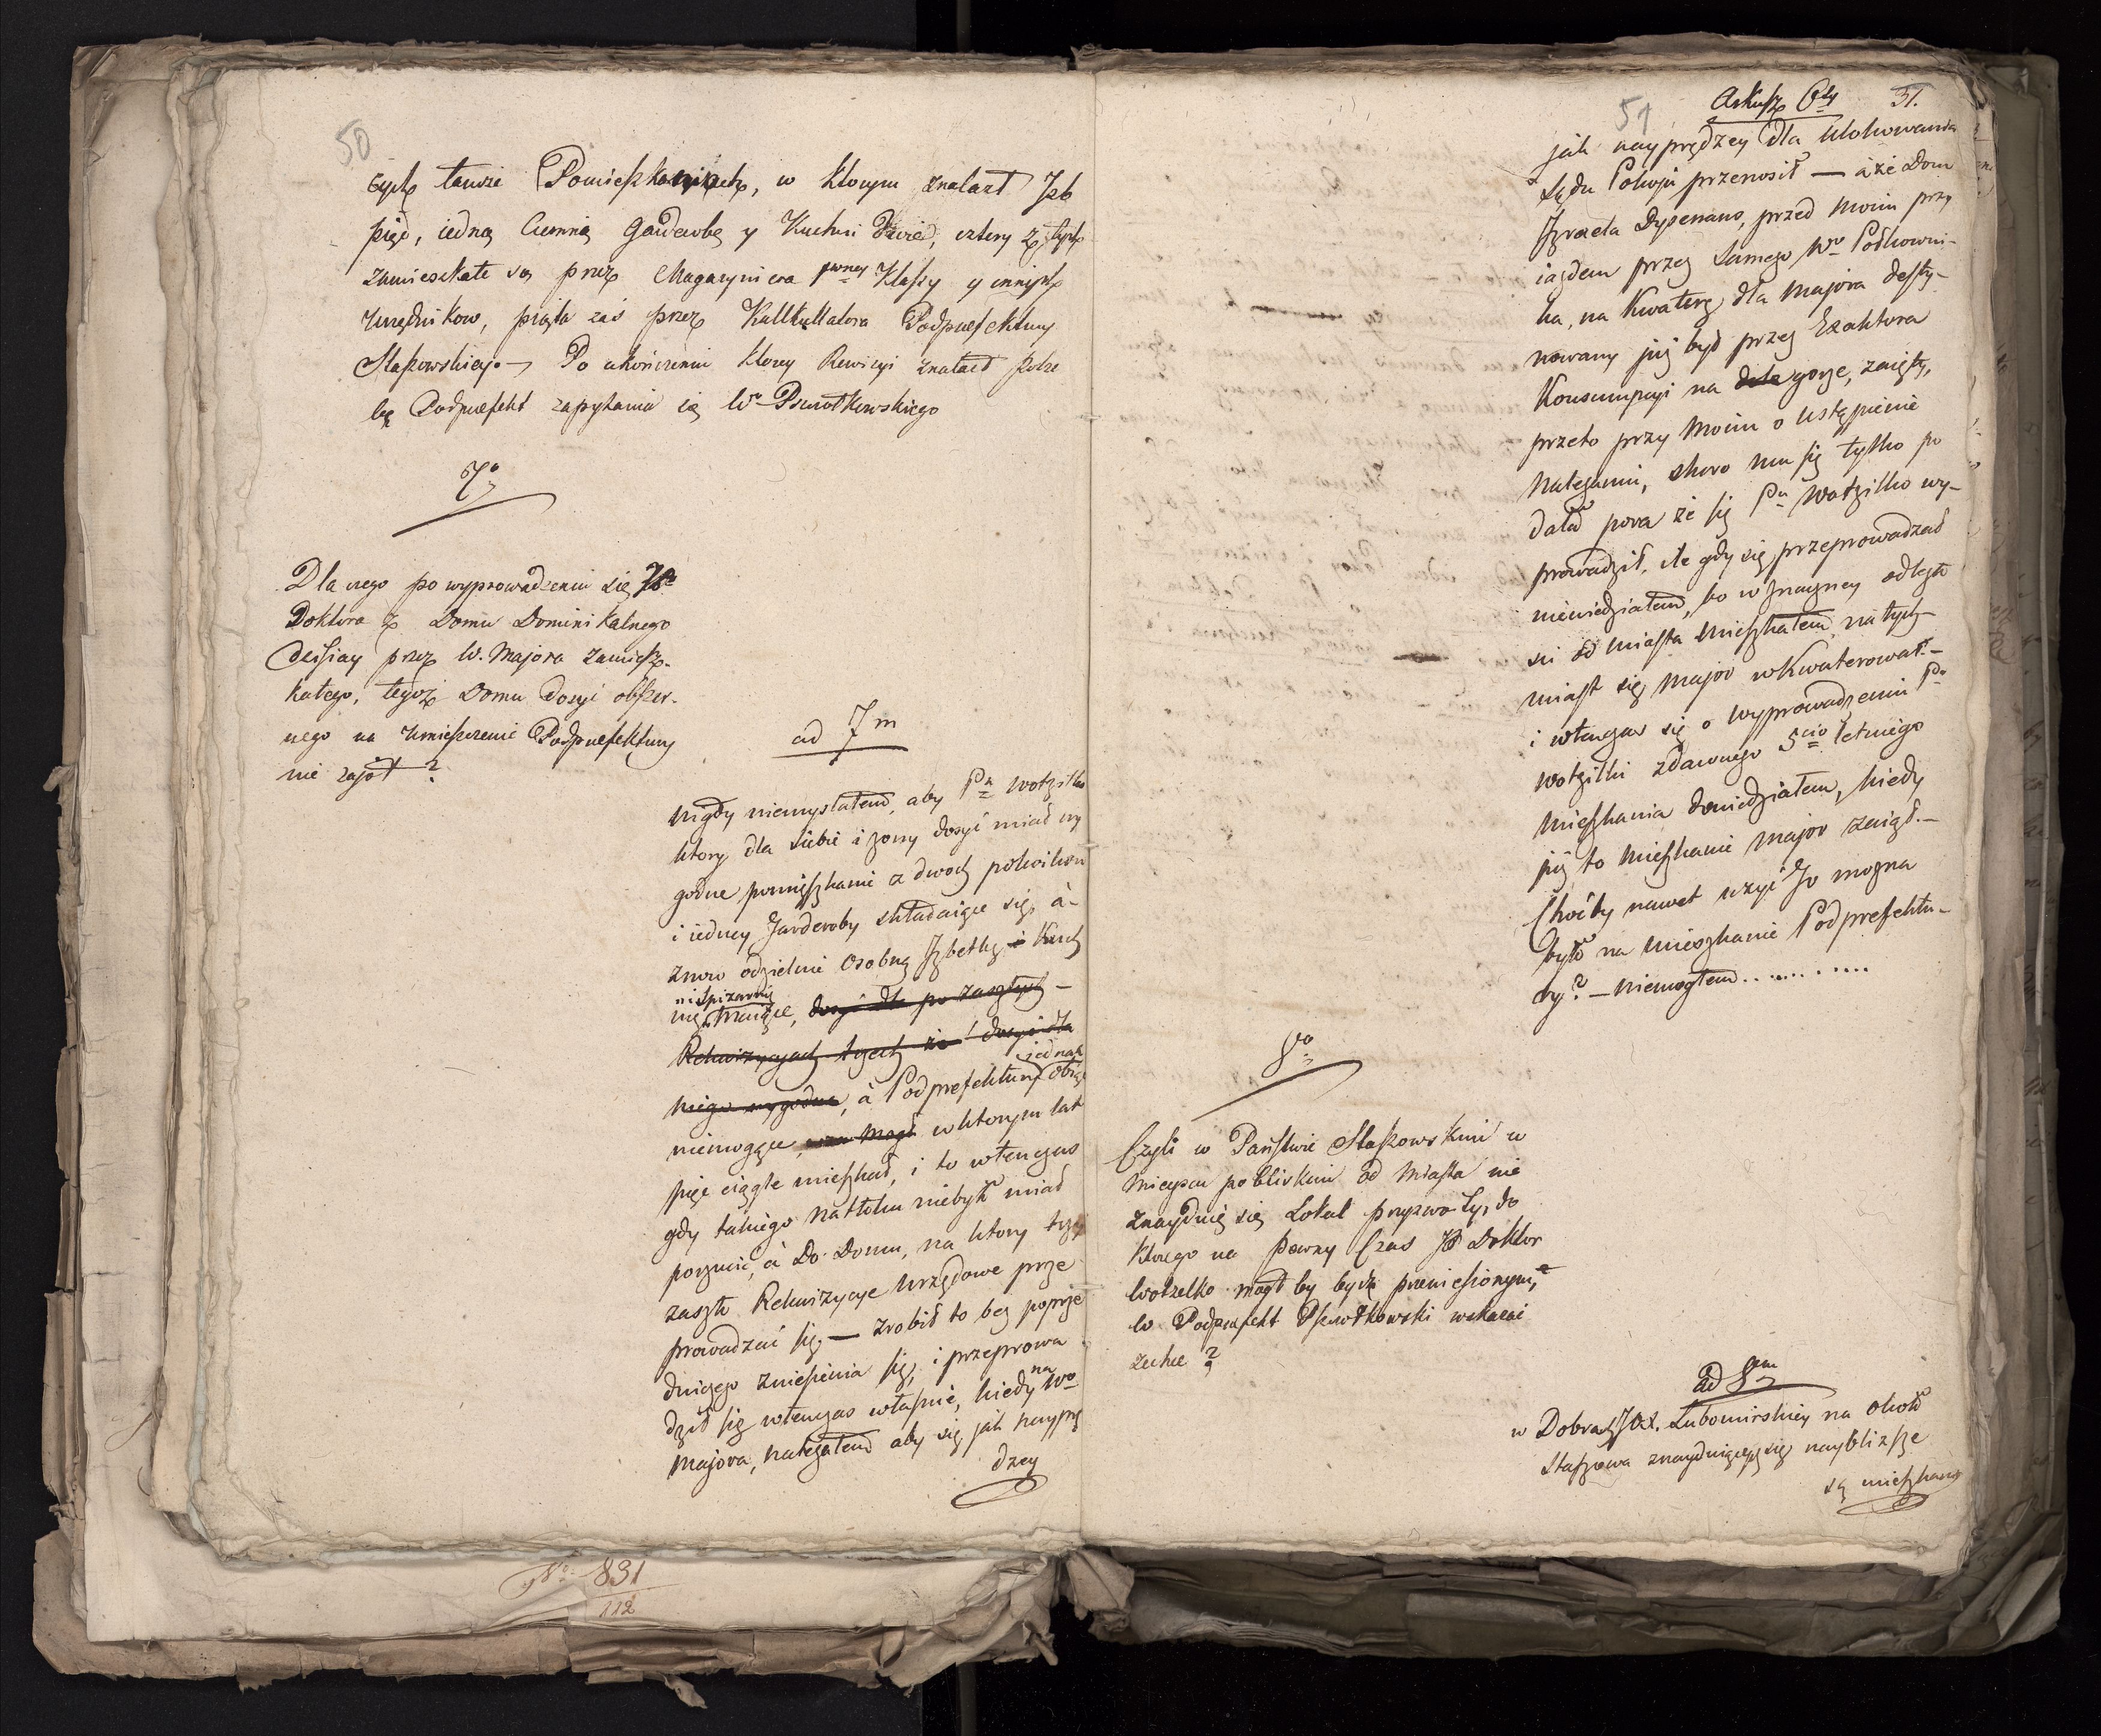 50
cych tamże Pomieszkaniach, w ktorym znalazł Izb
pięć, iedną Ciemną Garderobę y Kuchni dwie, cztery z tych
zamieszkałe są przez Magazyniera 1wszey Klassy y innych
Urzędnikow, piąta zaś przez Kalkullatora Podprefektury
Staszowskiey. — Po ukończeniu ktorey Rewizyi znalazł potrze
bę Podprefekt zapytania się Wo Pszrotkowskiego
7o
Dla czego po wyprowadzeniu się JPa
Doktora z Domu Dominikalnego
dzisiay przez W. Majora zamiesz-
kałego, tegoż Domu dosyć obszer-
nego na umieszczenie Podprefektury
nie zajął?
ad 7m
nigdy niemyslałem, aby Pn Wotzilko
ktory dla siebie i żony dosyć miał wy
godne pomięszkanie z dwoch pokoikow
i iedney Garderoby składaiące się, à-
znow odzielnie osobną Izbetkę i Kuch
ni Spiżarnię
nię maiące, dosyć dla po zaszłych —
Rekwizycyach trzech że ! dosyć dla
jednak
niego wygodne, à Podprefektury objąć
niemogące, mogł w ktorym lat
pięć ciągle mieszkał, i to wtenczas
gdy takiego natłoku niebyło miał
porzucić, à Do Domu, na ktory trzy
zaszło Rekwizycye Urzędowe prze
prowadzać się — zrobił to bez poprze
dniczego zniesienia się, i przeprowa
dził się wtenczas własnie, kiedy na Wo
Majora, nalegałem aby się jak nayprę
dzey
51
Arkusz 6ty
51.
jak nayprędzey dla ulokowania
Sądu Pokoju przenosił — à że Dom
Izraela Dysenans, przed moim przy
iazdem przez samego Wo Połkowni-
ka, na Kwaterę dla Majora desty-
nowany już był przez Exaktora
Konsumpcyi na dole gorze, zaięty,
przeto przy moim o ustąpienie
naleganiu, skoro mu się tylko po
dała pora że się Pn Wotzilko wy-
prowadził, ile gdy się przeprowadzał
niewiedziałem, bo w znaczney odległo
ści od miasta mieszkałem, natych
miast się Major wkwaterował. —
i wtenczas się o wyprowadzeniu Pa
Wotzilki zdawnego 5cio letniego
mieszkania dowiedziałem, kiedy
już to mieszkanie Major zaiął. —
Choćby nawet użyć go można
było na mieszkanie Podprefektu-
ry? — niemogłem...........
8o
Czyli w Państwie Staszowskim w
mieyscu pobliskim od Miasta nie
znayduię się Lokal przyzwoity, do
ktorego na pewny Czas JP Doktor
Wotzelko mogł by bydź przeniesionym,
W Podprefekt Pszrotkowski wskazać
zechce?
ad 8m
w Dobrach JOX. Lubomirskiey na około
Staszowa znayduiących się naybliższe
są mieszkania
No 831
112